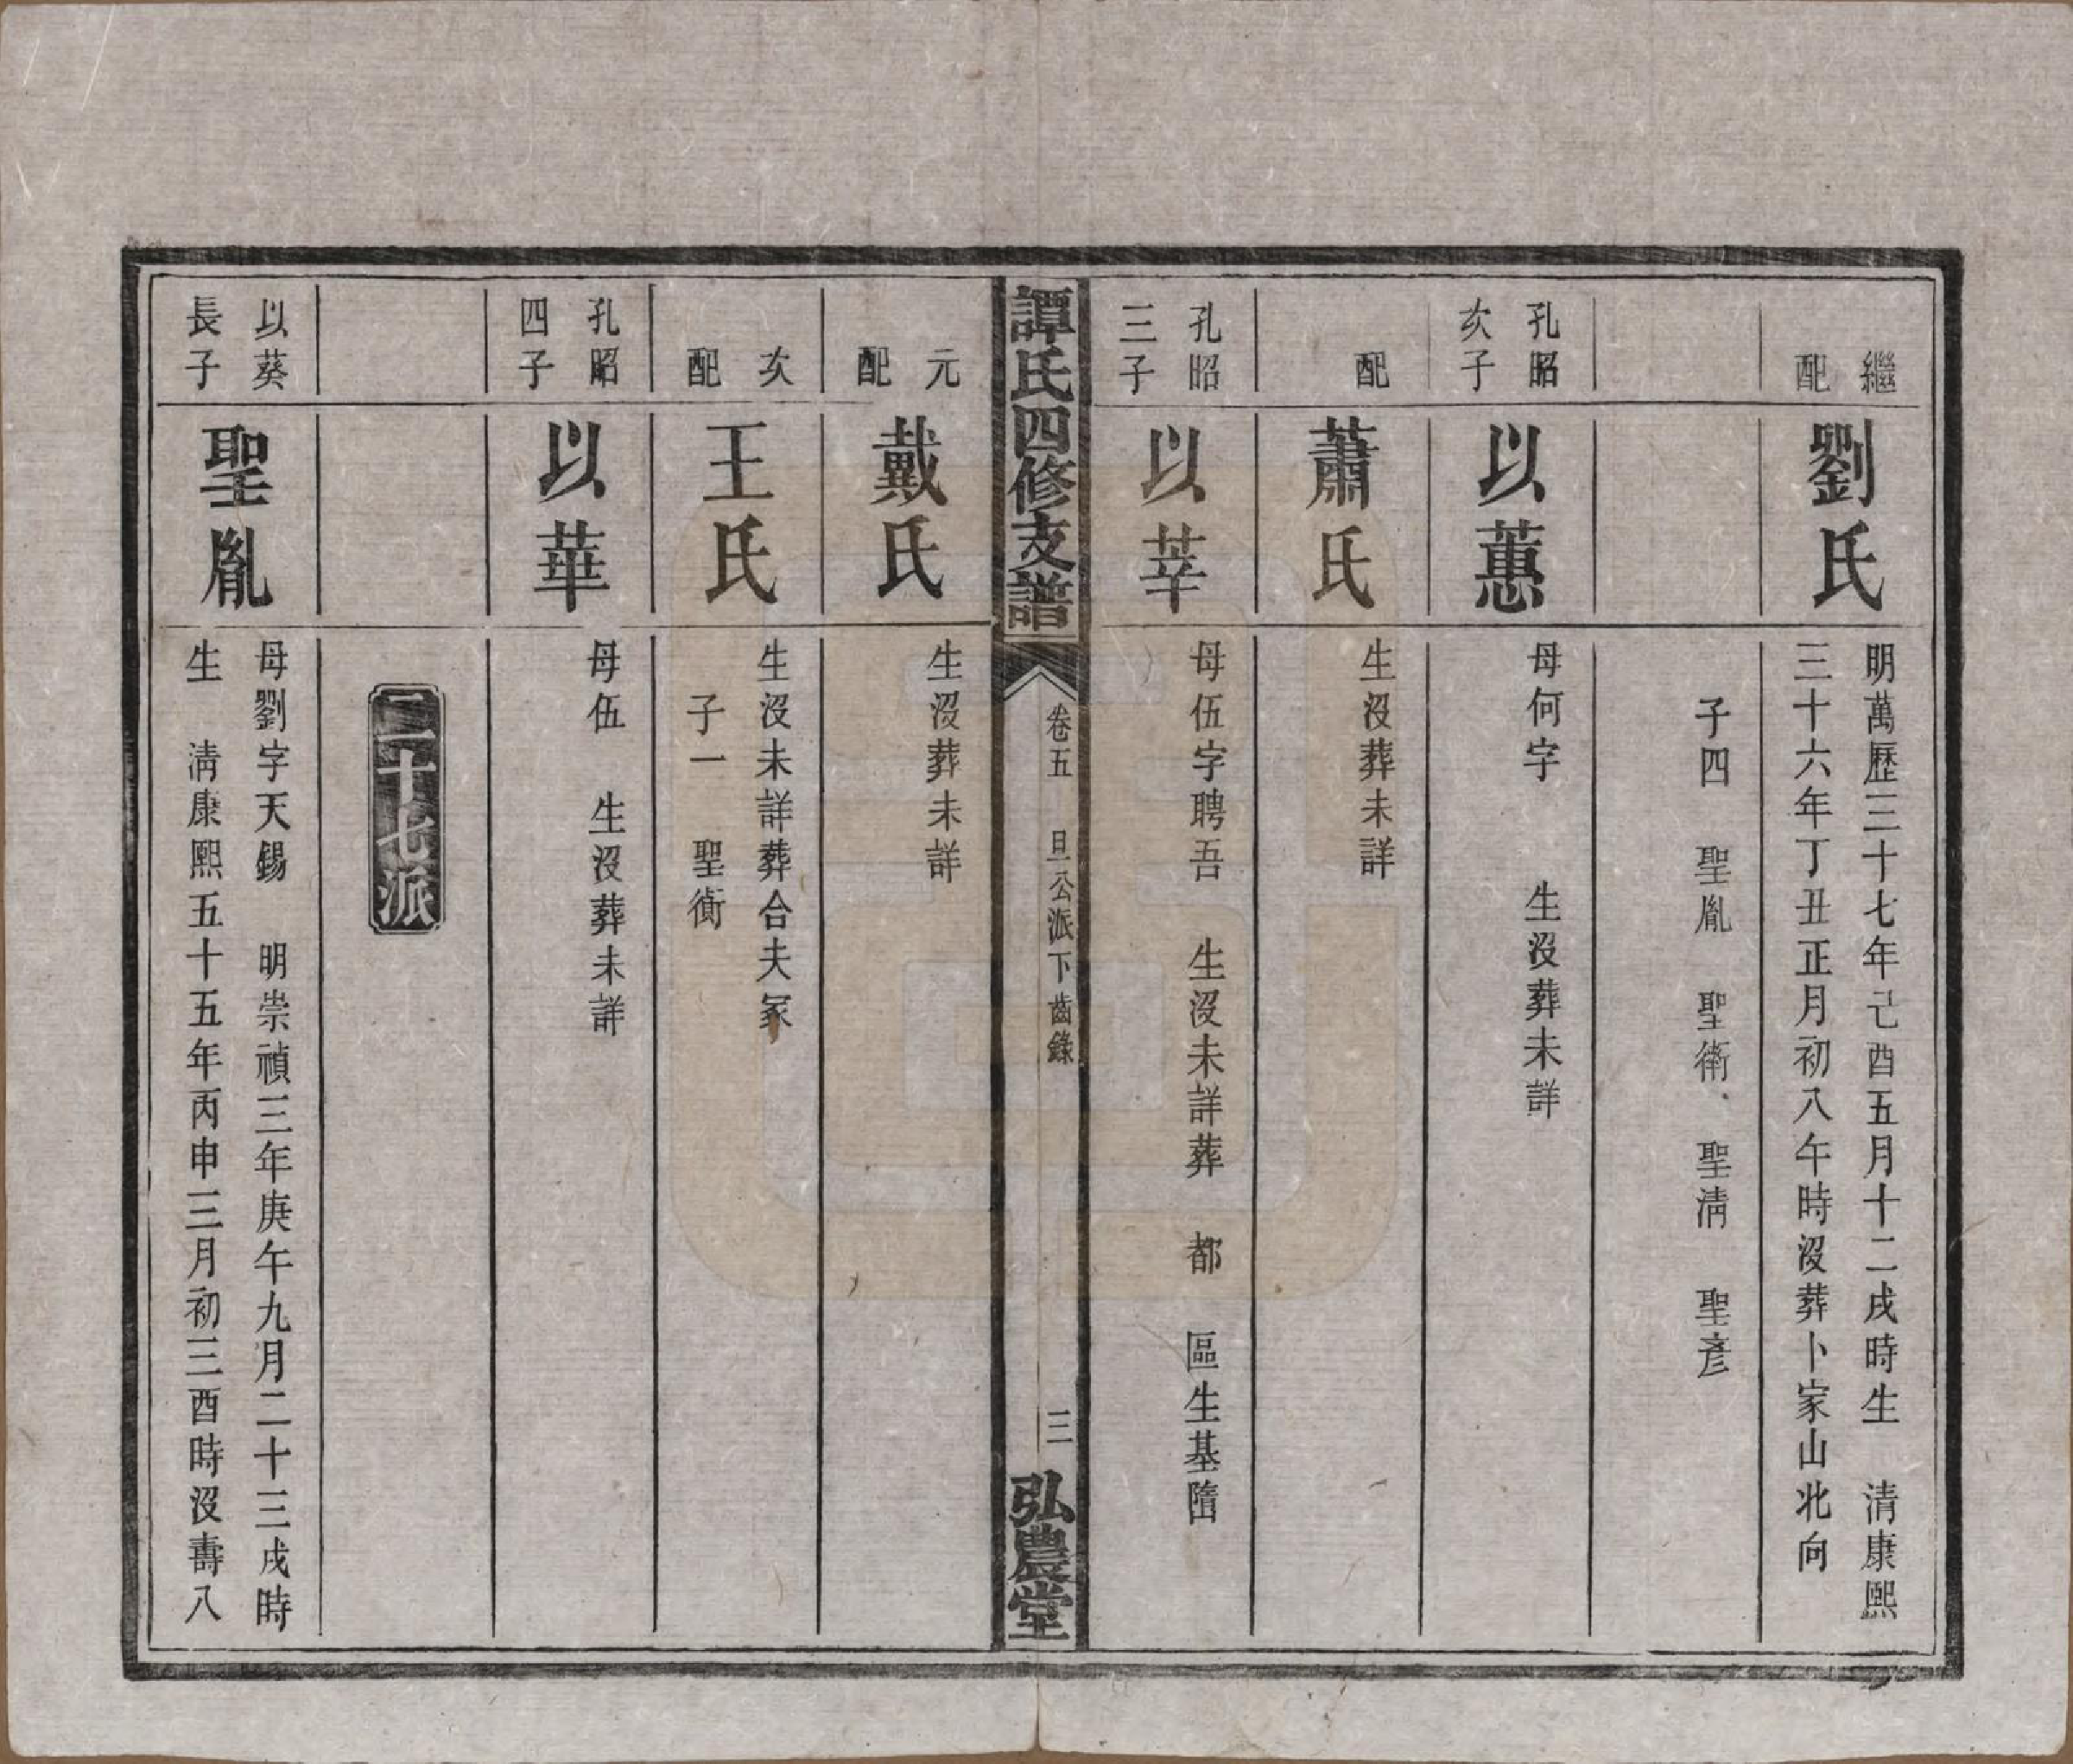 繼配
劉氏
明萬歷三十七年己酉五月十二戌時生 清康熙
三十六年丁丑正月初八午時沒葬卜家山北向
子四 聖胤 聖衛 聖淸 聖彥
孔昭次子
以蕙
母何字 生沒葬未詳
配
蕭氏
生沒葬未詳
孔昭三子
以莘
母伍字聘吾 生沒未詳葬 都 區生基
譚氏四修支譜
卷五 旦公派下齒錄
三
弘農堂
元配
戴氏
生沒葬未詳
次配
王氏
生沒未詳葬合夫冢
子一 聖衡
孔昭四子
以華
母伍 生沒葬未詳
二十七派
以葵長子
聖胤
母劉字天錫 明崇禎三年庚午九月二十三戌時
生 淸康熙五十五年丙申三月初三酉時沒壽八